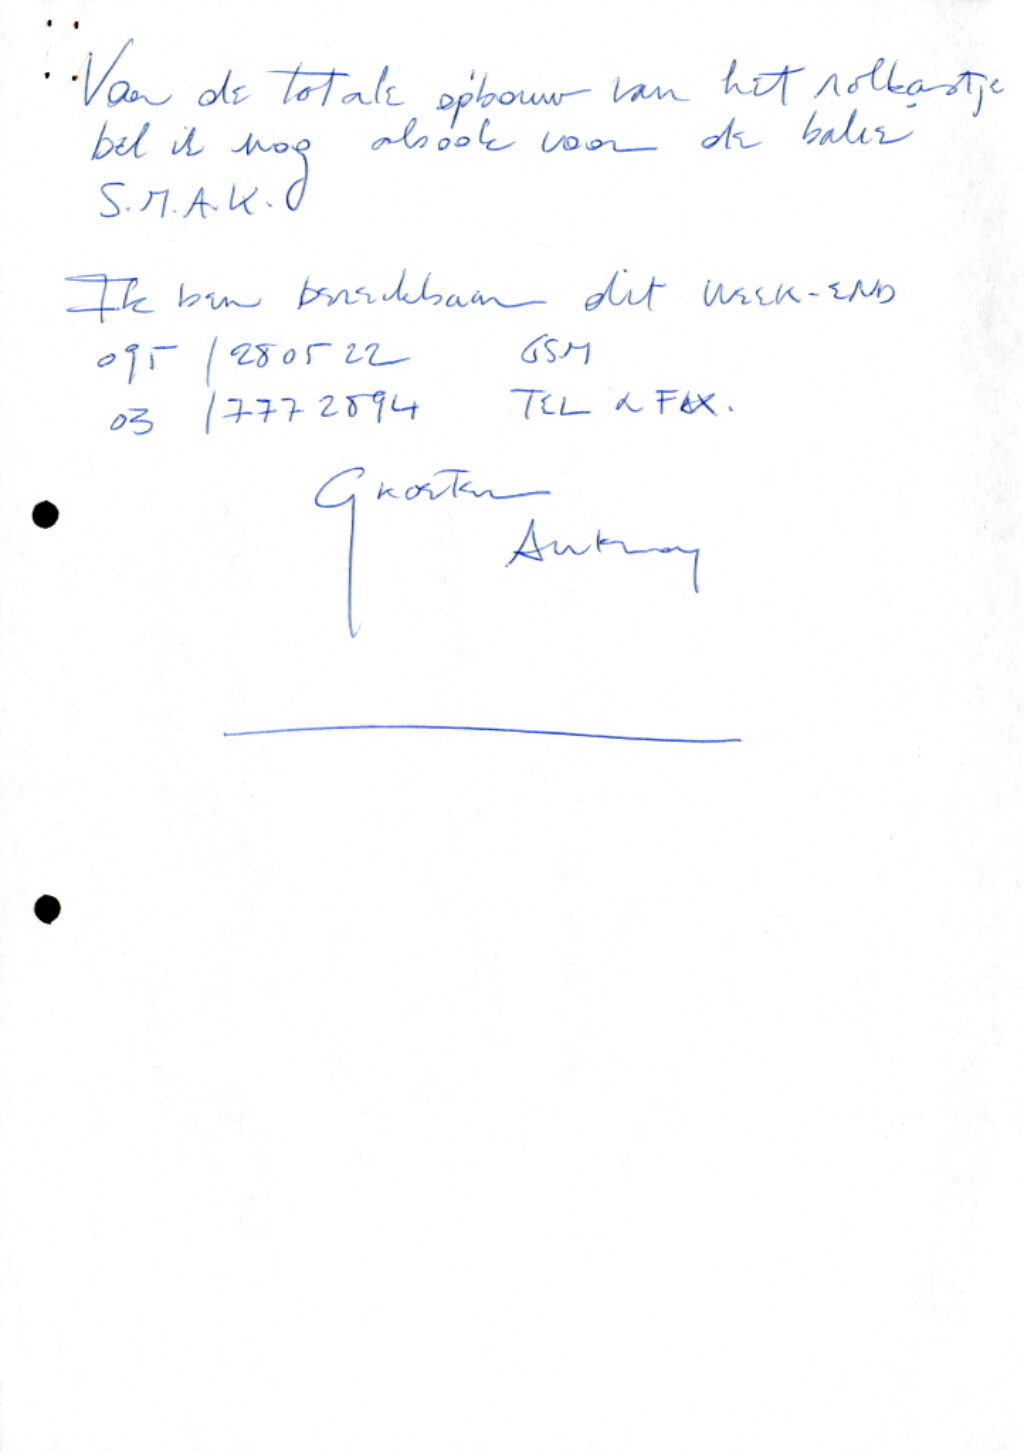 Van de totale opbouw van het rolkastje
bel ik nog alsook voor de balie
S.M.A.K.
Ik ben bereikbaar dit WEEK-END
095 / 280522 GSM
03 / 7772894 TEL & FAX.
Groeten
Anthony